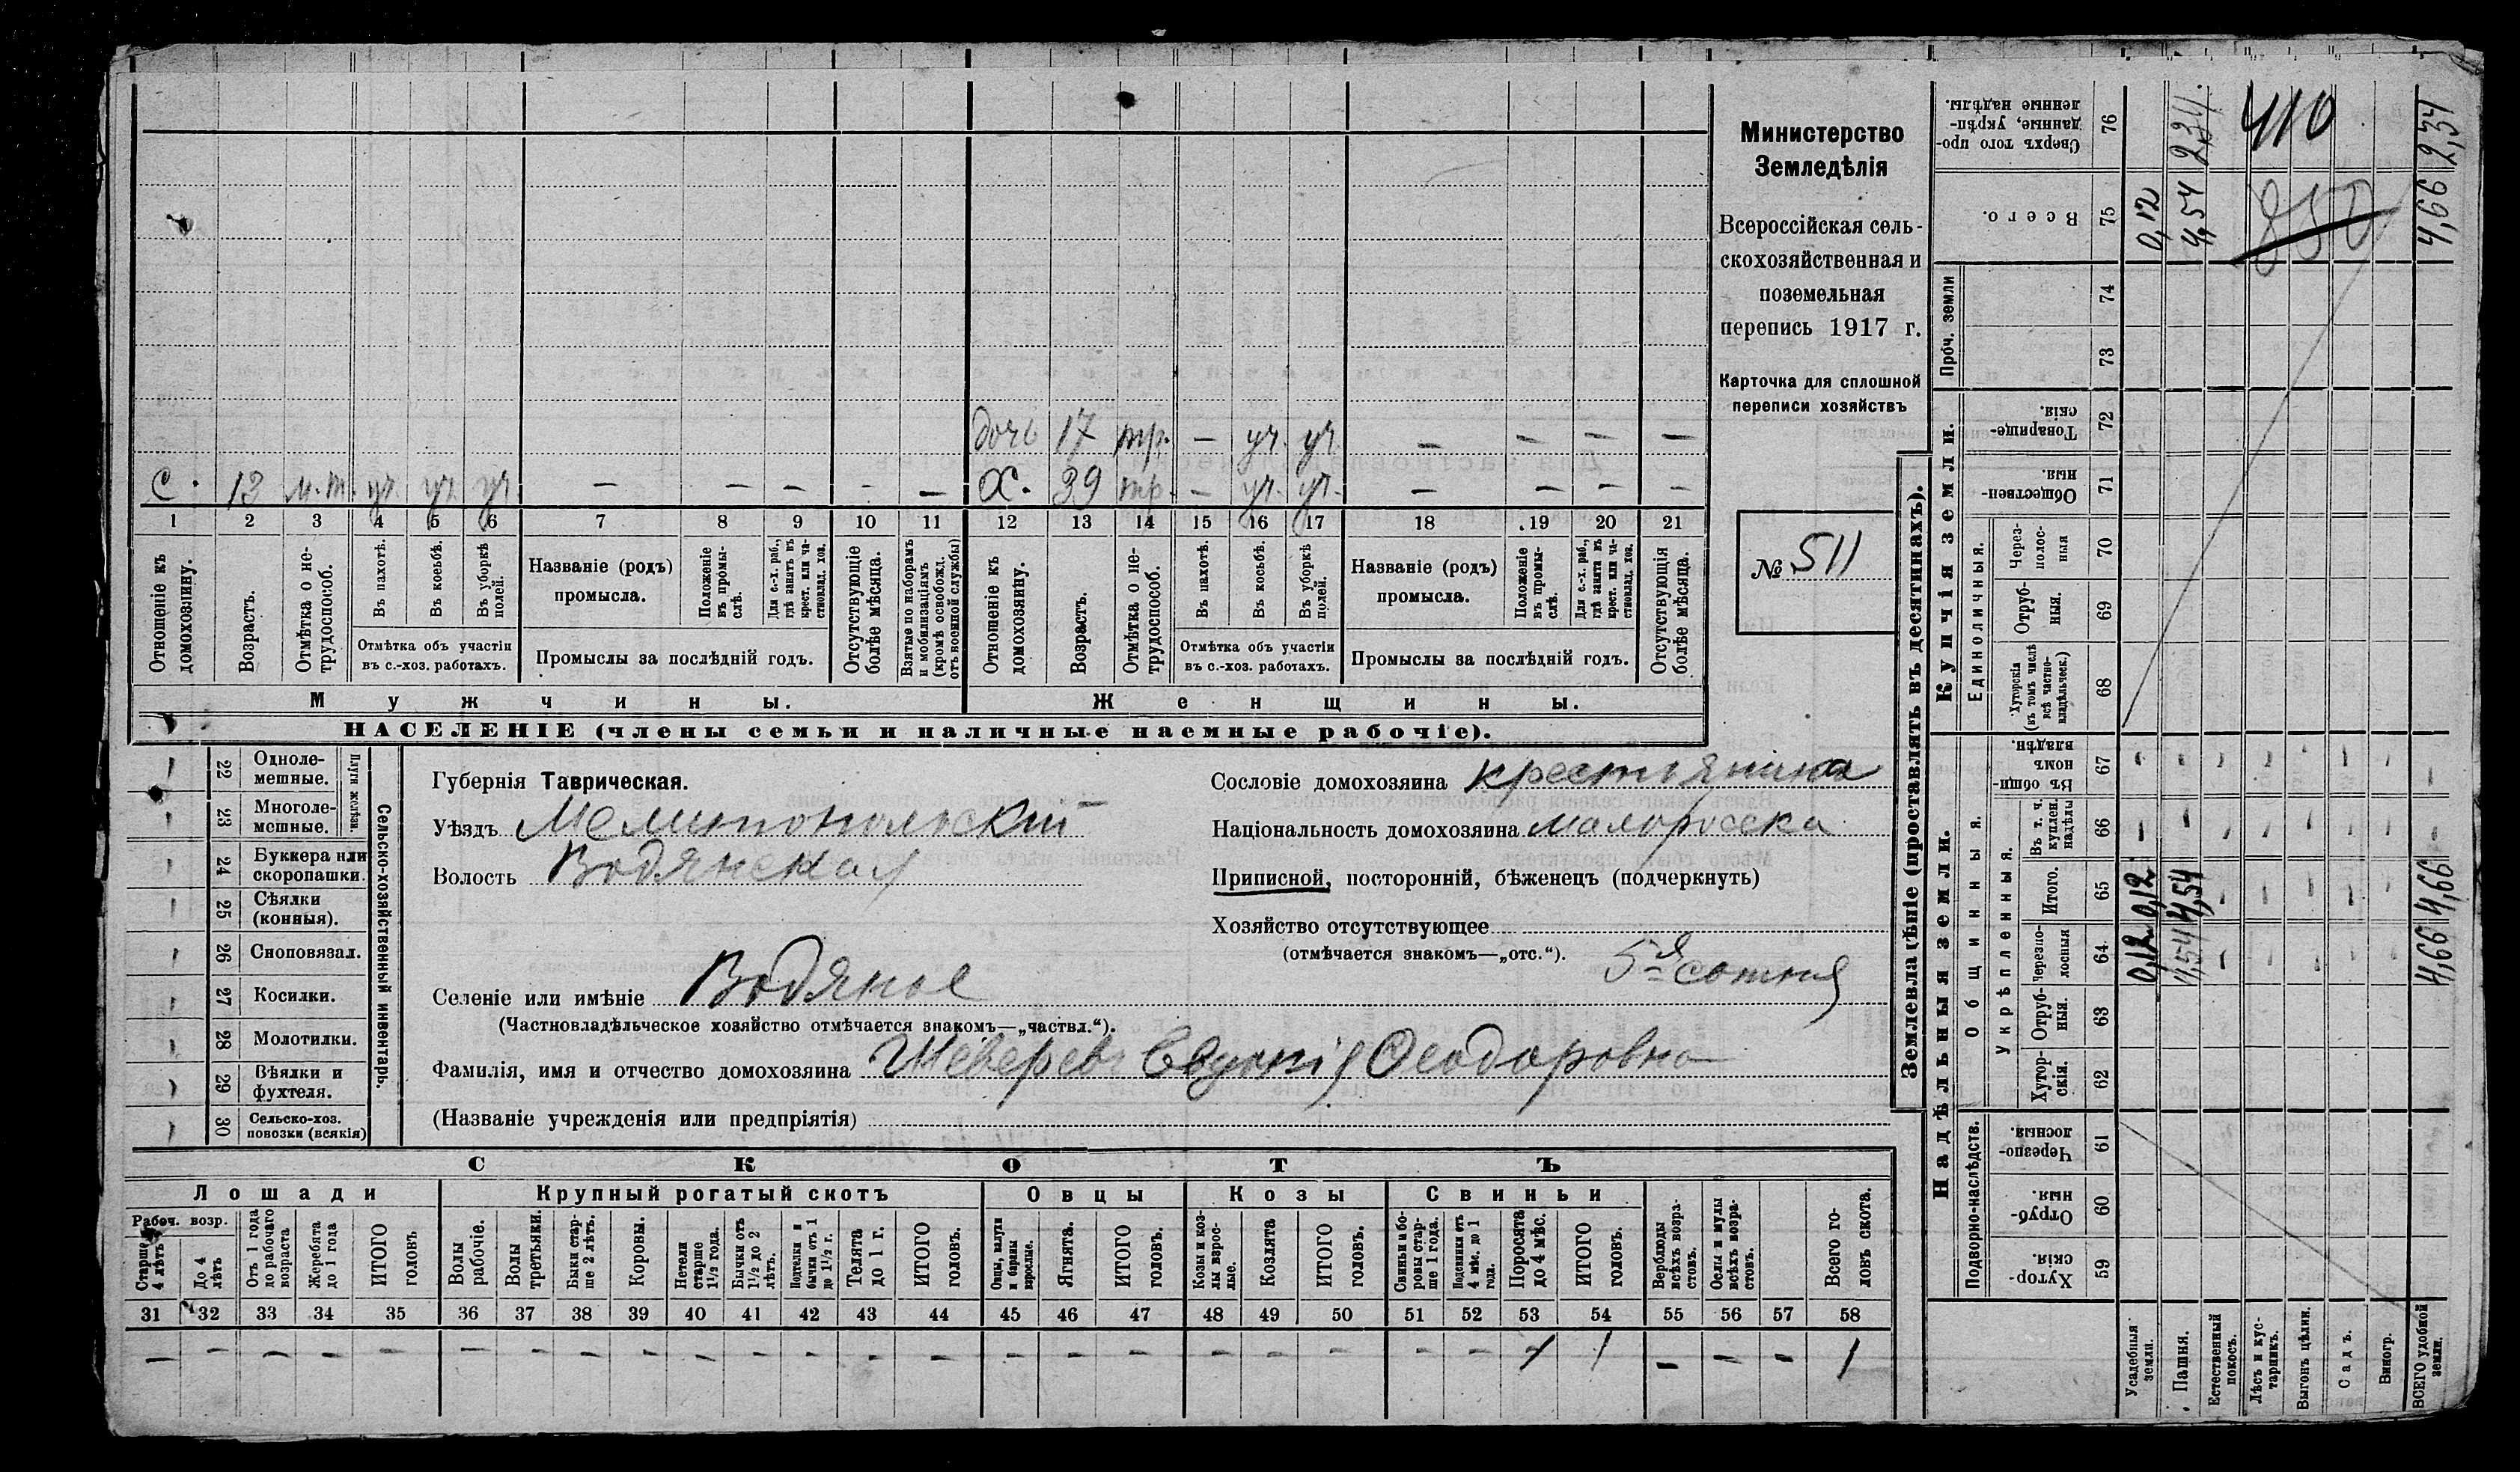 Министерство
Земледѣлія
Всероссійская сель-
скохозяйственная и
поземельная
перепись 1917 г.
Карточка для сплошной
переписи хозяйствъ
№ 511
дочь 17 тр. — уч. уч. — — — —
с. 13 м.т. уч. уч. уч. — — — — — х. 39 тр. — уч. уч. — — — —
1 2 3 4 5 6 7 8 9 10 11 12 13 14 15 16 17 18 19 20 21
Отношеніе къ домохозяину.
Возрастъ.
Отмѣтка о не-трудоспособ.
Въ пахотѣ.
Въ косьбѣ.
Въ уборкѣ полей.
Отмѣтка объ участіи
въ с.-хоз. работахъ.
Названіе (родъ)
промысла.
Положеніе въ промы-слѣ.
Для с.-х. раб., гдѣ занятъ въ крест. или ча-стновлад. хоз.
Промыслы за послѣдній годъ.
Отсутствующіе болѣе мѣсяца.
Взятые по наборамъ и мобилизаціямъ (кромѣ освобожд. отъ военной службы)
Отношеніе къ домохозяину.
Возрастъ.
Отмѣтка о не-трудоспособ.
Въ пахотѣ.
Въ косьбѣ.
Въ уборкѣ полей.
Отмѣтка объ участіи
въ с.-хоз. работахъ.
Названіе (родъ)
промысла.
Положеніе въ промы-слѣ.
Для с.-х. раб., гдѣ занята въ крест. или ча-стновлад. хоз.
Промыслы за послѣдній годъ.
Отсутствующія болѣе мѣсяца.
Мужчины. Женщины.
НАСЕЛЕНІЕ (члены семьи и наличные наемные рабочіе).
Сельско-хозяйственный инвентарь.
Плуги желѣзн.
22 Одноле-мешные.
23 Многоле-мешные.
24 Буккера или скоропашки.
25 Сѣялки (конныя).
26 Сноповязал.
27 Косилки.
28 Молотилки.
29 Вѣялки и фухтеля.
30 Сельско-хоз. повозки (всякія)
Губернія Таврическая.
Уѣздъ Мелитопольскій
Волость Водянская
Селеніе или имѣніе Водяное
(Частновладѣльческое хозяйство отмѣчается знакомъ—„частвл.“).
Сословіе домохозяина крестьянина
Національность домохозяина малоросска
Приписной, посторонній, бѣженецъ (подчеркнуть)
Хозяйство отсутствующее
(отмѣчается знакомъ—„отс.“).
5-я сотня
Фамилія, имя и отчество домохозяина Феодоровна
(Названіе учрежденія или предпріятія)
СКОТЪ
Лошади Крупный рогатый скотъ Овцы Козы Свиньи
Рабоч. возр.
Старше 4 лѣтъ
До 4 лѣтъ
Отъ 1 года до рабочаго возраста
Жеребята до 1 года
ИТОГО головъ
Волы рабочіе.
Волы третьяки.
Быки стар-ше 2 лѣтъ.
Коровы.
Нетели старше 1½ года.
Бычки отъ 1½ до 2 лѣтъ.
Подтелки и бычки отъ 1 до 1½ г.
Телята до 1 г.
ИТОГО головъ.
Овцы, валухи и бараны взрослые.
Ягнята.
ИТОГО головъ.
Козы и коз-лы взрос-лые.
Козлята
ИТОГО головъ.
Свиньи и бо-ровы стар-ше 1 года.
Подсвинки отъ 4 мѣс. до 1 года.
Поросята до 4 мѣс.
ИТОГО головъ.
Верблюды всѣхъ возра-стовъ.
Ослы и мулы всѣхъ возра-стовъ.
Всего го-ловъ скота.
31 32 33 34 35 36 37 38 39 40 41 42 43 44 45 46 47 48 49 50 51 52 53 54 55 56 57 58
— — — — — — — — — — — — — — — — — — — — — — 1 1 — — — 1
Землевладѣніе (проставлять въ десятинахъ).
Надѣльныя земли.
Подворно-наслѣдств.
Хутор-скія. 59
Отруб-ныя. 60
Черезпо-лосныя. 61
Общинныя.
Укрѣпленныя.
Хутор-скія. 62
Отруб-ныя. 63
Черезпо-лосныя 64 0,12 4,54 4,66
Итого. 65 0,12 4,54 4,66
Въ т. ч. куплен. надѣлы 66
Въ общи-номъ владѣн. 67
Купчія земли.
Единоличныя.
Хуторскія (въ томъ числѣ всѣ частно-владѣльческ.) 68
Отруб-ныя. 69
Через-полос-ныя 70
Обществен-ныя. 71
Товарище-скія. 72
Проч. земли
73
74
Всего. 75 0,12 4,54 850 4,66
Сверхъ того про-данные, укрѣп-ленные надѣлы. 76 2,34 410 2,34
Усадебныя земли.
Пашня.
Естественный покосъ.
Лѣсъ и кус-тарникъ.
Выгонъ цѣлин.
Садъ.
Виногр.
ВСЕГО удобной земли.